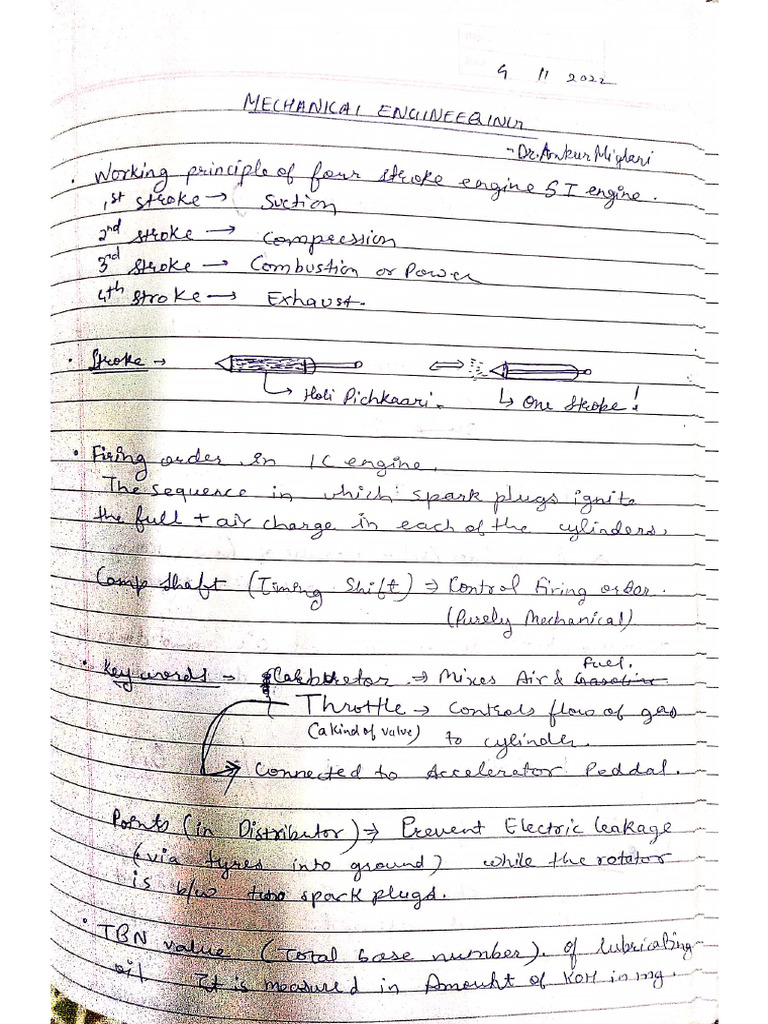 4 11 2022
MECHANICAL ENGINEERING
- Dr. Ankur Miglani
• Working principle of four stroke engine SI engine.
1st stroke → Suction
2nd stroke → Compression
3rd stroke → Combustion or Power
4th stroke → Exhaust.
• Stroke →
↳ Holi Pichkaari. ↳ One stroke!
• Firing order in IC engine.
The sequence in which spark plugs ignite
the full + air charge in each of the cylinders.
Camp shaft (Timing Shift) ⇒ Control firing order.
(Purely Mechanical)
fuel.
• Key words → Carburetor → Mixes Air & Gasoline
Throttle → Controls flow of gas
(a kind of valve) to cylinder.
Connected to Accelerator Peddal.
Points (in Distributor) ⇒ Prevent Electric leakage
(via tyres into ground) while the rotator
is b/w two spark plugs.
• TBN value (Total base number). of lubricating
oil It is measured in Amount of KOH in mg.